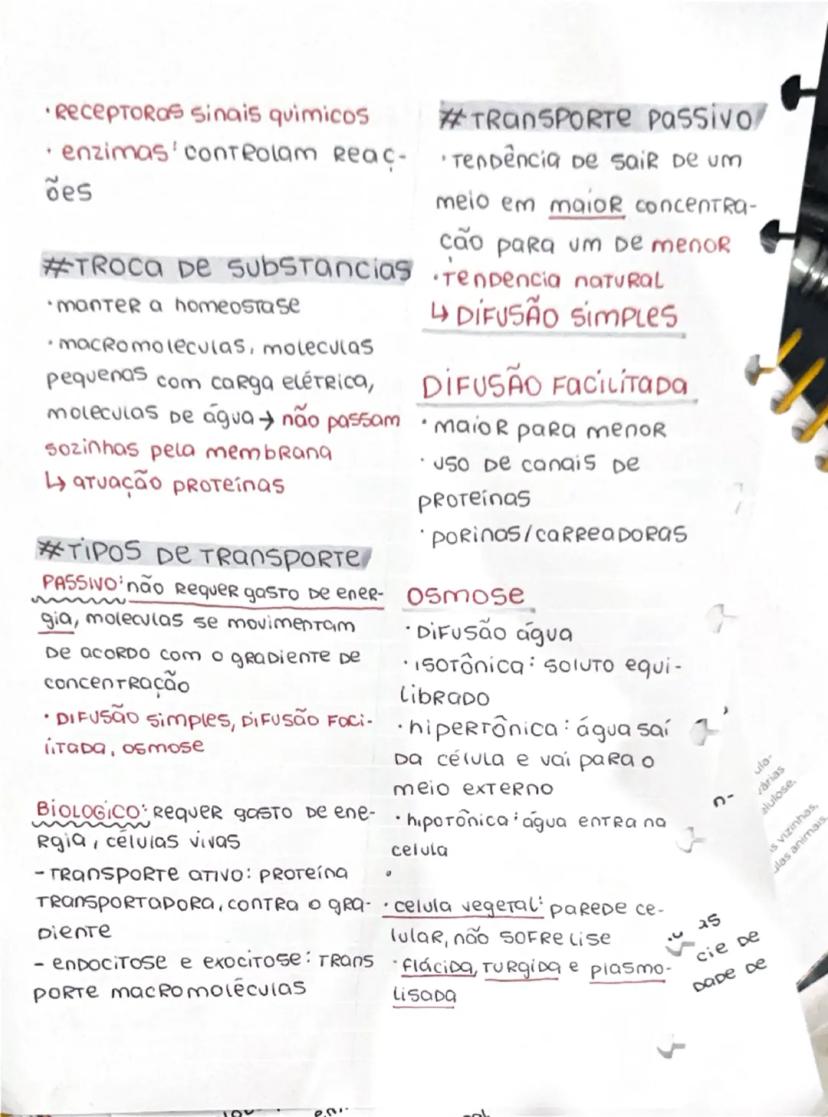 • RECEPTORAS sinais quimicos
• enzimas: CONTROLAM REAÇ-
ões
#TROCA DE SUBSTANCIAS
• MANTER a homeostase
• macromoleculas, moleculas
pequenas com carga elétrica,
moleculas DE água → não passam
sozinhas pela membrana
↳ atuação proteínas
#TIPOS DE TRANSPORTE
PASSIVO: não REQUER gasto DE ENER-
gia, moleculas se movimentam
DE acordo com o gradiente DE
concentração
• DIFUSÃO simples, DIFUSÃO Faci-
litada, osmose
BIOLOGICO: REQUER gasto DE ene-
Rgia, células vivas
- TRANSPORTE ativo: PROTEÍNA
TRANSPORTADORA, CONTRA O gRA-
Diente
- endocitose e exocitose: TRANS
PORTE macromoléculas
#TRANSPORTE PASSIVO
• TENDÊNCIA DE SAIR DE UM
meio em maior concentra-
ção para um DE menor
• TENDENCIA NATURAL
↳ DIFUSÃO simples
DIFUSÃO FACILITADA
• maior para menor
• uso DE canais DE
proteínas
• PORINAS/CARREADORAS
OSMOSE
• DIFUSÃO água
• ISOTÔNICA: SOLUTO equi-
librado
• hipertônica: água saí
DA célula e vai para o
meio externo
• hipotônica: água entra na
celula
•
• celula vegetal: parede ce-
lular, não SOFRE lise
• flácida, TURGIDA e plasmo-
lisada
n-
as
cie DE
DADE DE
ula-
várias
elulose,
s vizinhas,
ulas animais.